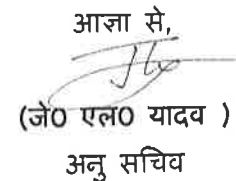 आज्ञा से,
(जे0 एल0 यादव )
अनु सचिव